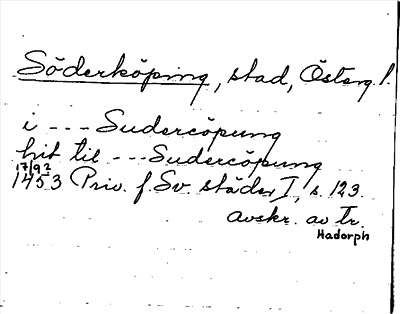 Söderköping, stad, Österg.l.
i --- Sudercöpung
hit til --- Sudercöpung
17/9?
1453 Priv. f. Sv. städer I, s. 123.
avskr. av tr.
Hadorph